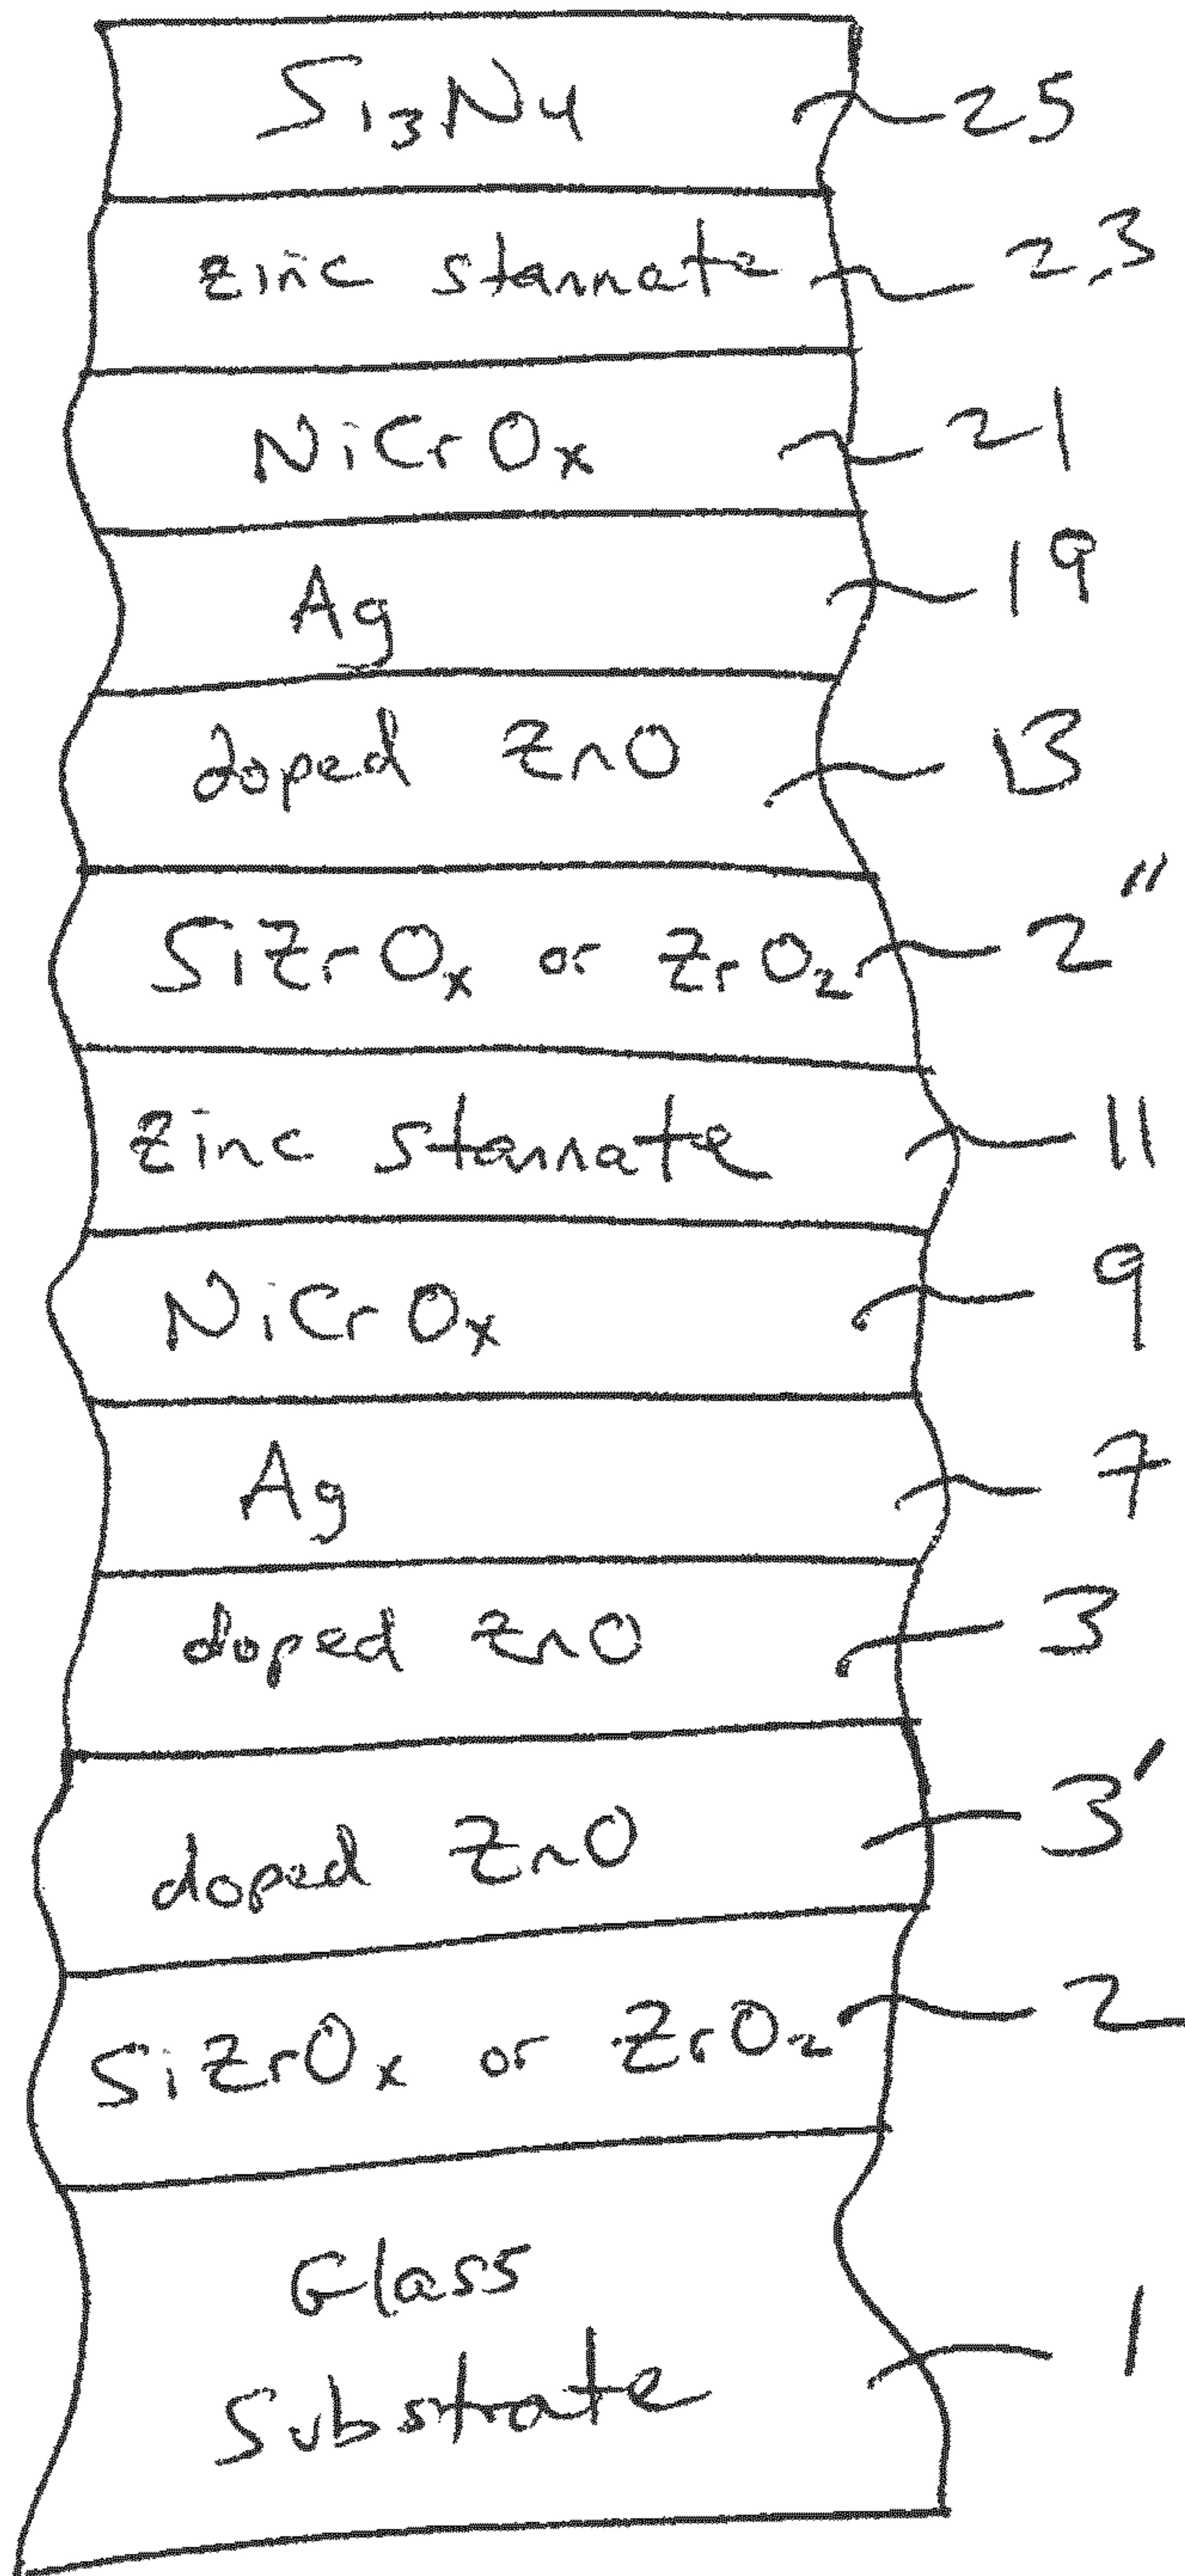 Si₃N₄ 25
zinc stannate 23
NiCrOₓ 21
Ag 19
doped ZnO 13
SiZrOₓ or ZrO₂ 2"
zinc stannate 11
NiCrOₓ 9
Ag 7
doped ZnO 3
doped ZnO 3'
SiZrOₓ or ZrO₂ 2
Glass
Substrate 1